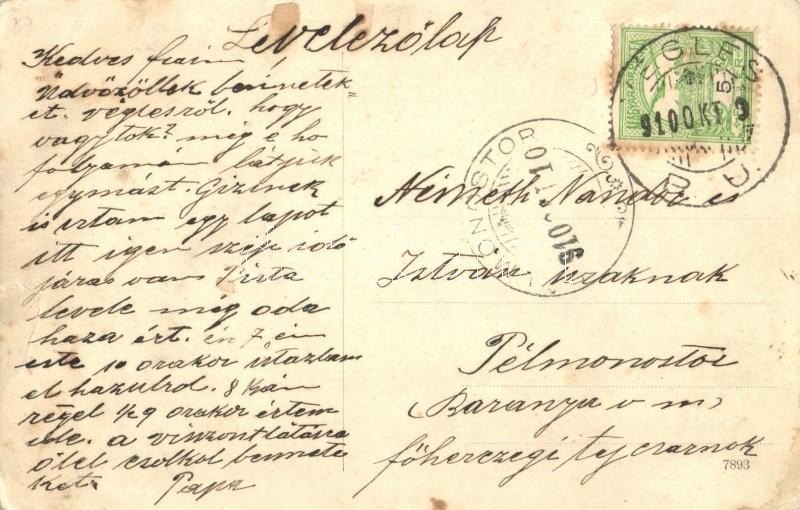 Levelezőlap
Kedves fiaim!
Üdvözöllek bennetek=
et. véglesről. hogy
vagytok? még e ho
folyamán látjuk
egymást. Gizinek
is irtam egy lapot
itt igen szép idő
járas van Pista
levele még oda
haza ért. én 7 én
este 10 orakor utaztam
el hazulrol. 8 kán
régel 1/2 9 orakor értem
ide. a viszontlátásra
ölel csolkol bennete
ket. Papa
Németh Nándor es
István uraknak
Pélmonostor
Baranya v m
főherczegi tejcsarnok
VÉGLES
910 OKT 9
MONOSTOR
910
7893